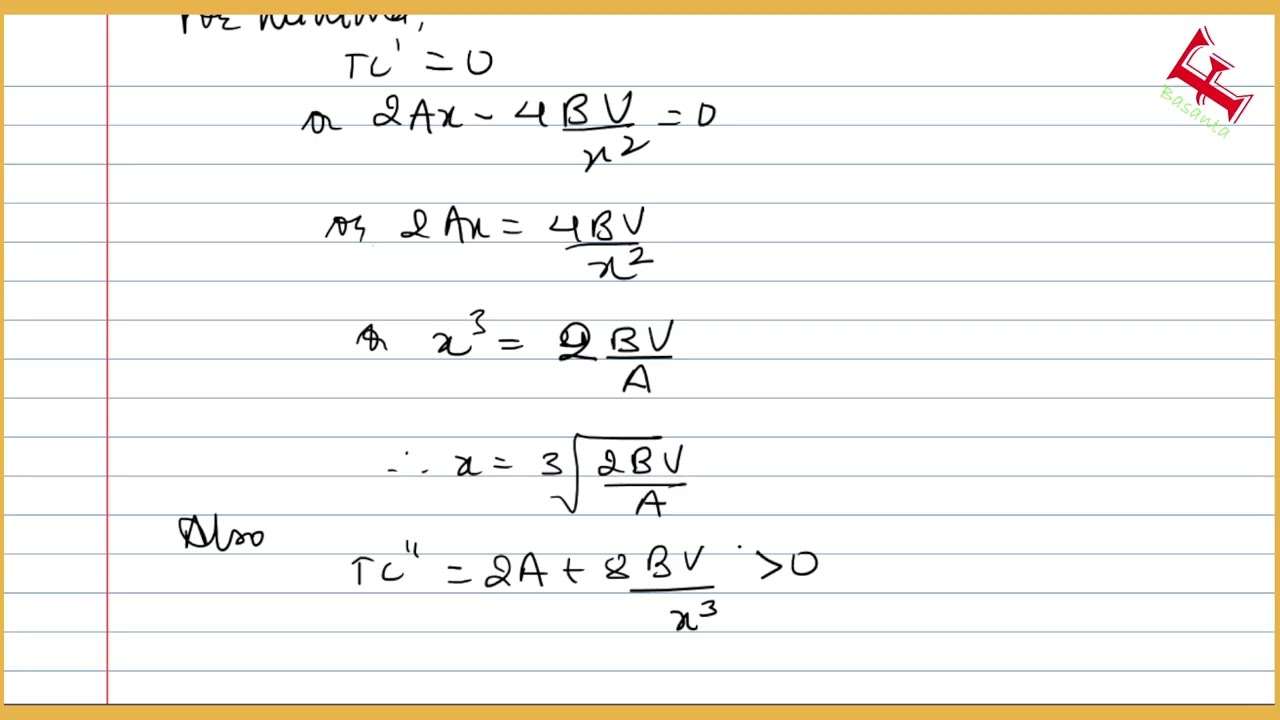 For minima,
TC' = 0
or 2Ax - 4BV/x² = 0
or, 2Ax = 4BV/x²
or x³ = 2 BV/A
∴ x = ³√(2BV/A)
Also
TC" = 2A + 8BV/x³ > 0
Basanta